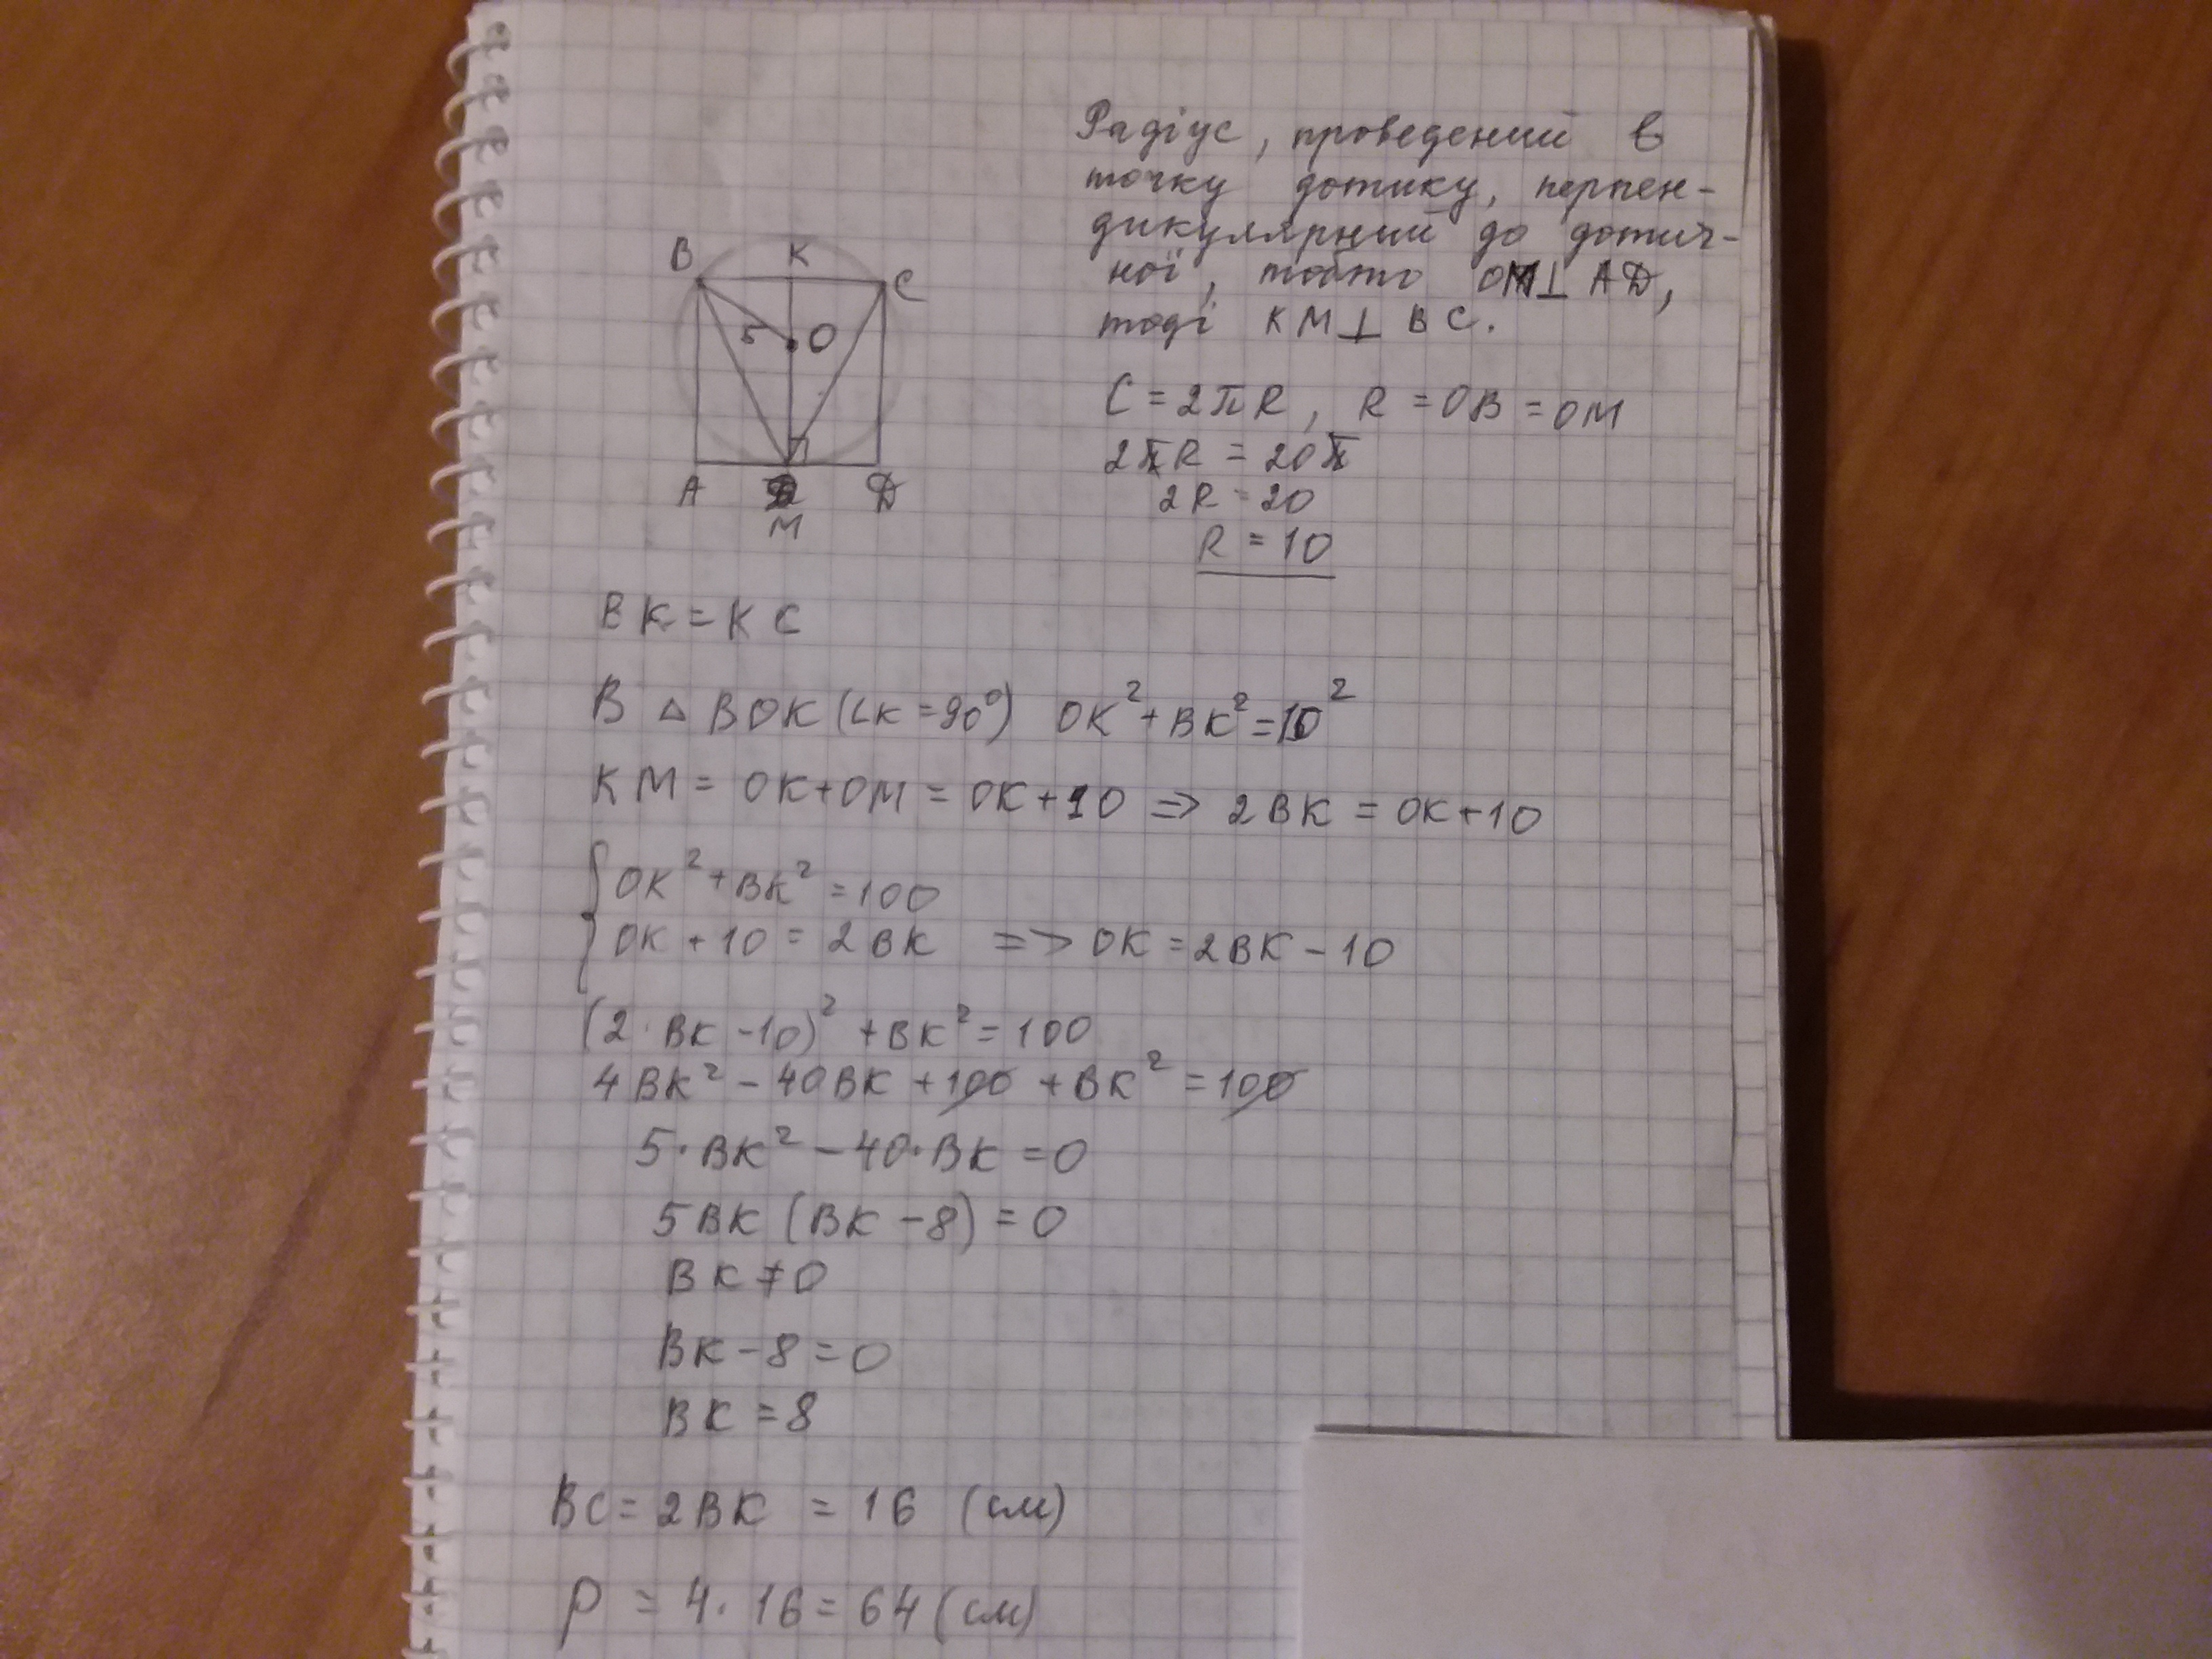 Радіус, проведений в
точку дотику, перпен-
дикулярний до дотич-
ної, тобто OM⊥AD,
тоді KM⊥BC.
B K C
5 O
A M D
C = 2πR, R = OB = OM
2πR = 20π
2R = 20
R = 10
BK = KC
В △ BOK (∠K = 90°) OK² + BK² = 10²
KM = OK + OM = OK + 10 => 2BK = OK + 10
{ OK² + BK² = 100
OK + 10 = 2BK => OK = 2BK - 10
(2·BK - 10)² + BK² = 100
4BK² - 40BK + 100 + BK² = 100
5·BK² - 40·BK = 0
5BK (BK - 8) = 0
BK ≠ 0
BK - 8 = 0
BK = 8
BC = 2BK = 16 (см)
P = 4·16 = 64 (см)